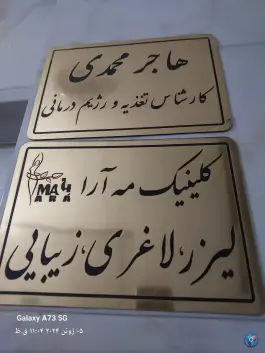 هاجر محمدی
کارشناس تغذیه و رژیم درمانی
کلینیک مه آرا
MAH
ARA
لیزر، لاغری، زیبایی
Galaxy A73 5G
۰۵ ژوئن ۲۰۲۴ ۱۱:۰۴ ق.ظ